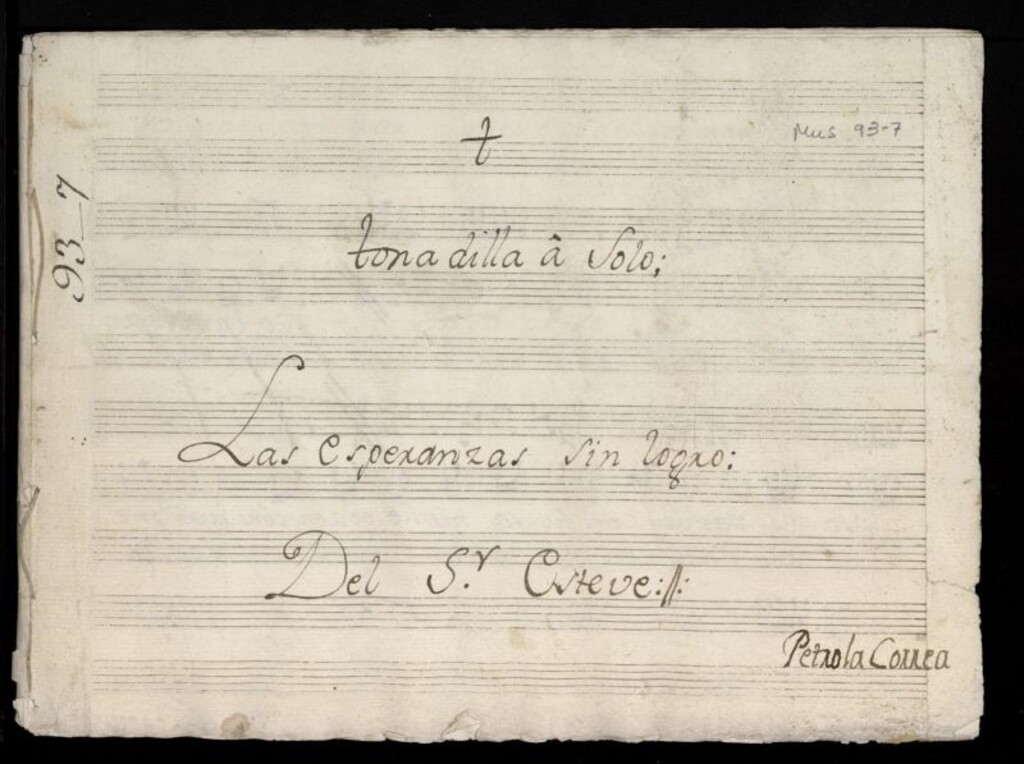 t
Mus 93-7
93_7
tonadilla â Solo;
Las Esperanzas sin logro:
Del S.r Esteve://:
Petrola Correa